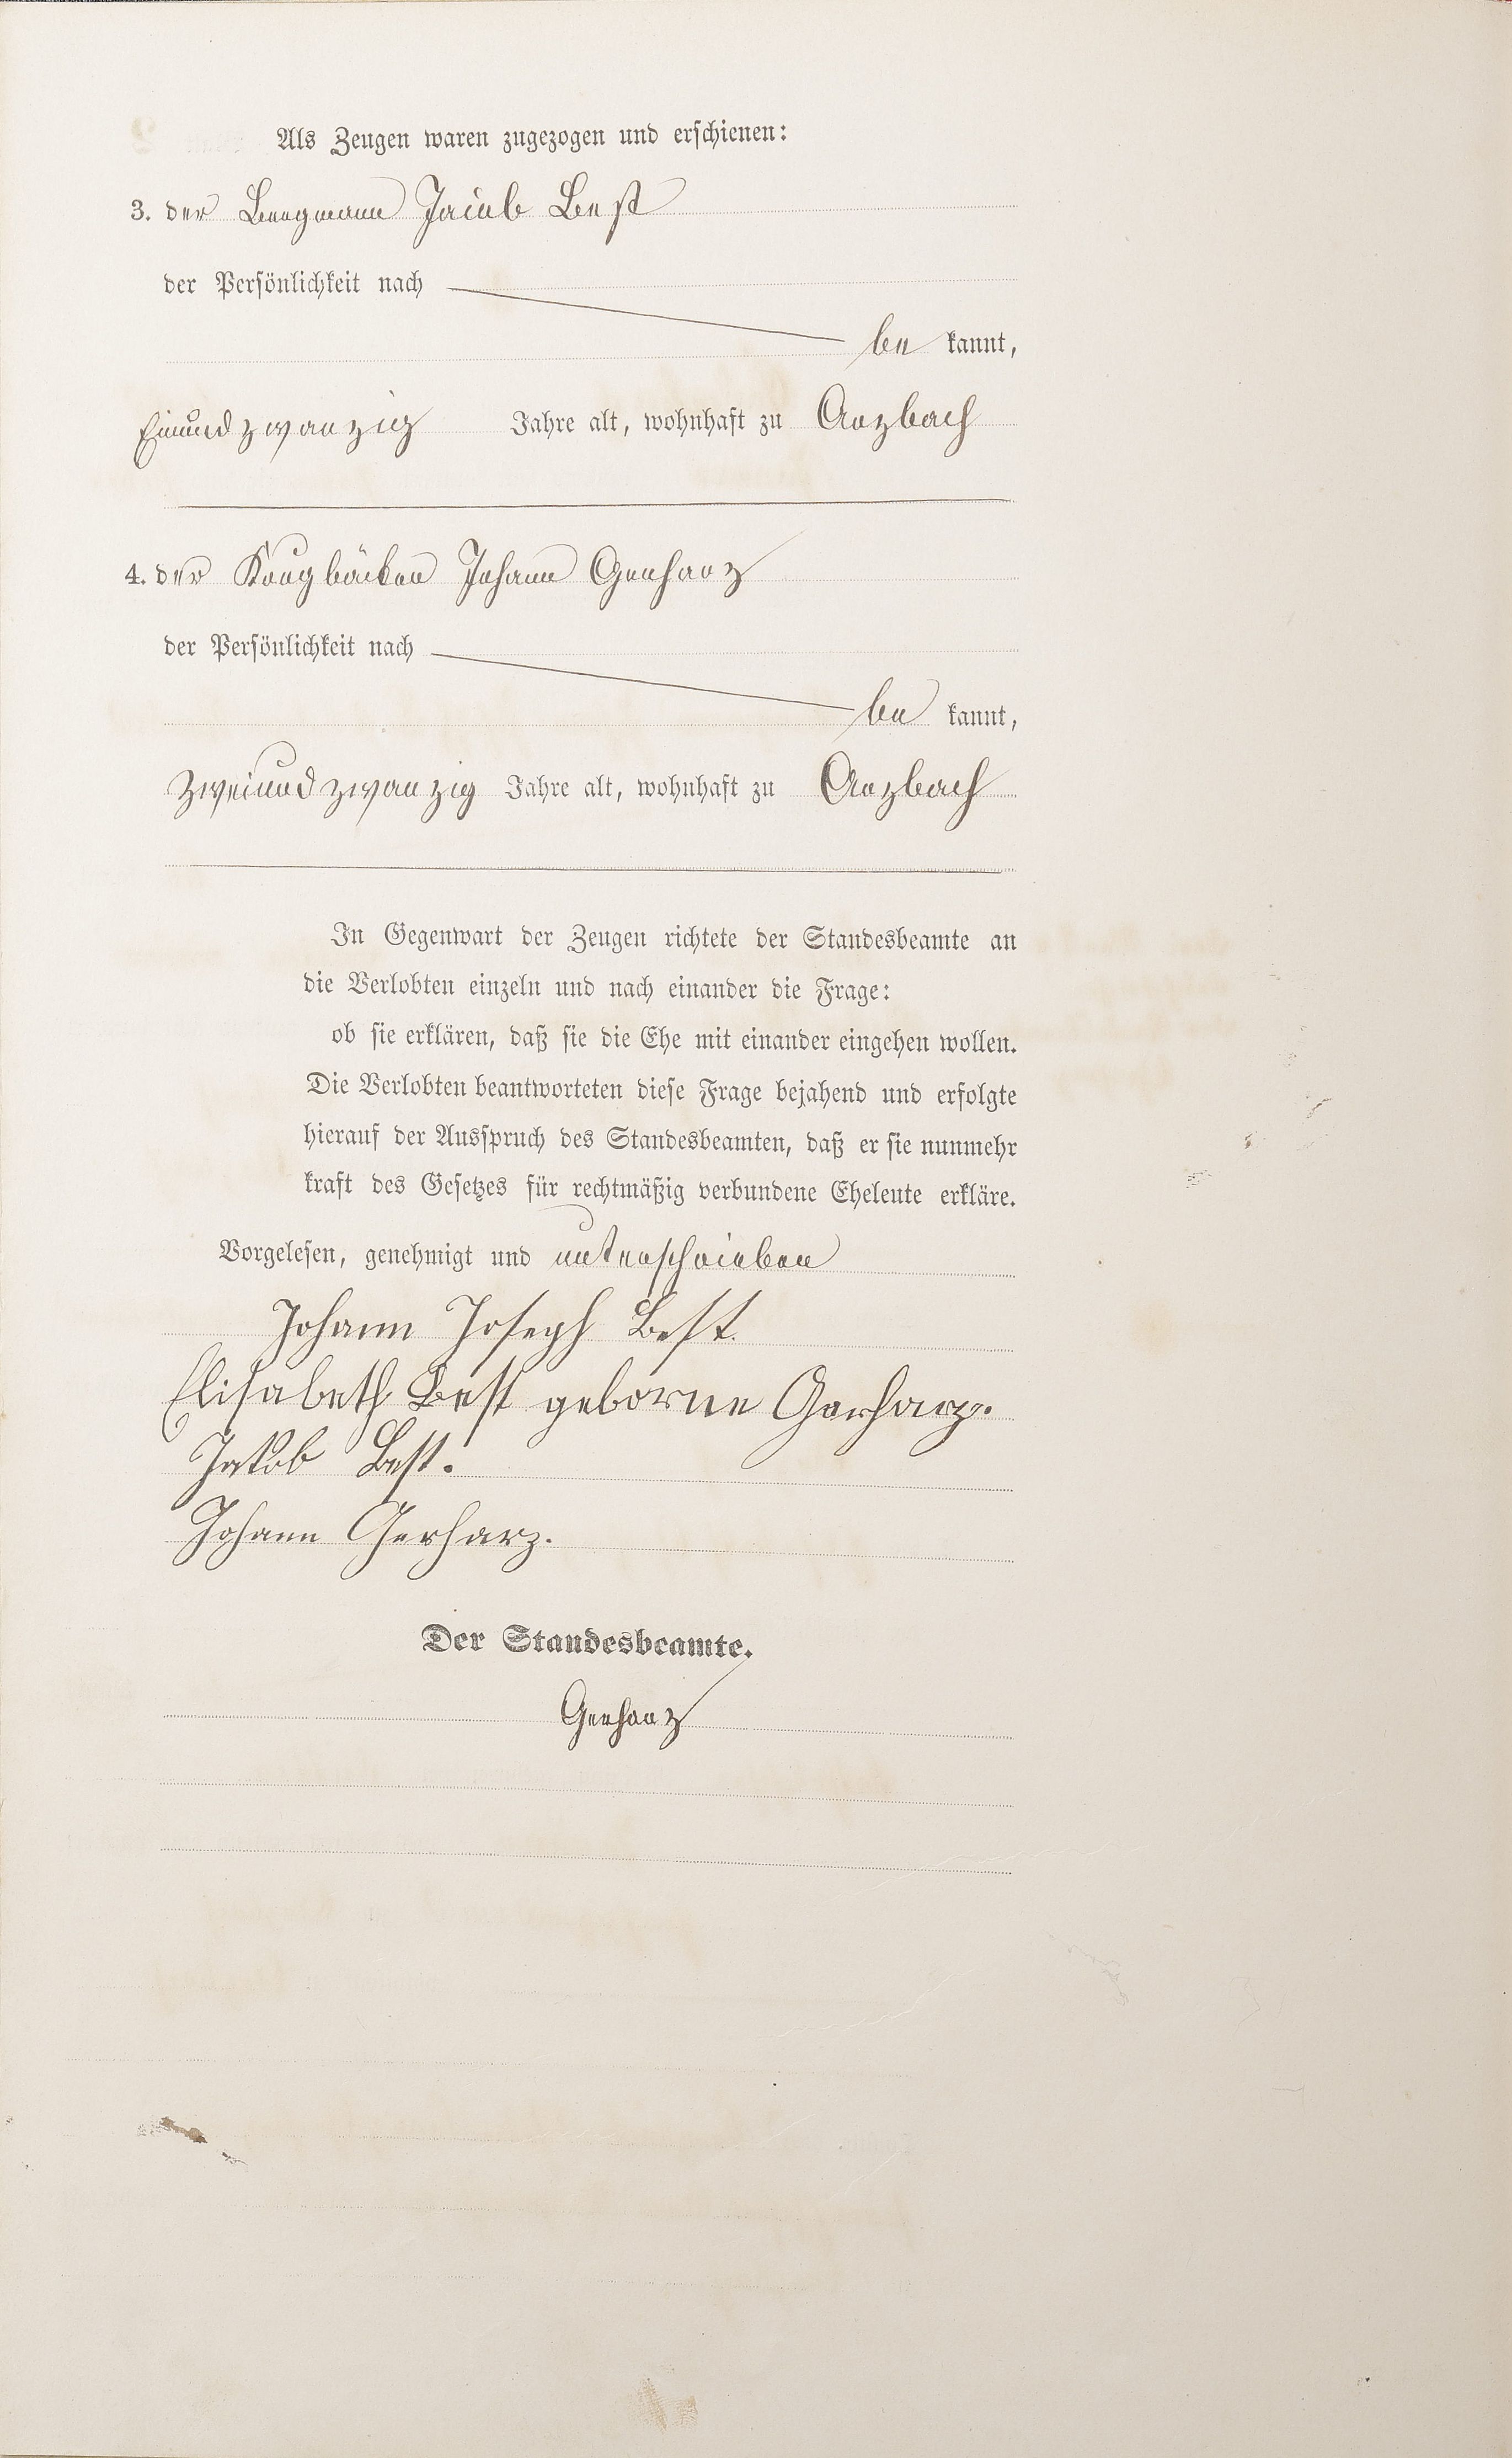 Als Zeugen waren zugezogen und erschienen:
3. der Bergmann Jacob Best
der Persönlichkeit nach
be kannt,
Einundzwanzig Jahre alt, wohnhaft zu Arzbach
4. der Krugbäcker Johann Gerharz
der Persönlichkeit nach
be kannt,
Zweiundzwanzig Jahre alt, wohnhaft zu Arzbach
In Gegenwart der Zeugen richtete der Standesbeamte an
die Verlobten einzeln und nach einander die Frage:
ob sie erklären, daß sie die Ehe mit einander eingehen wollen.
Die Verlobten beantworteten diese Frage bejahend und erfolgte
hierauf der Ausspruch des Standesbeamten, daß er sie nunmehr
kraft des Gesetzes für rechtmäßig verbundene Eheleute erkläre.
Vorgelesen, genehmigt und unterschrieben
Johann Joseph Best.
Elisabeth Best geborne Gerharz.
Jakob Best.
Johann Gerharz.
Der Standesbeamte.
Gerharz